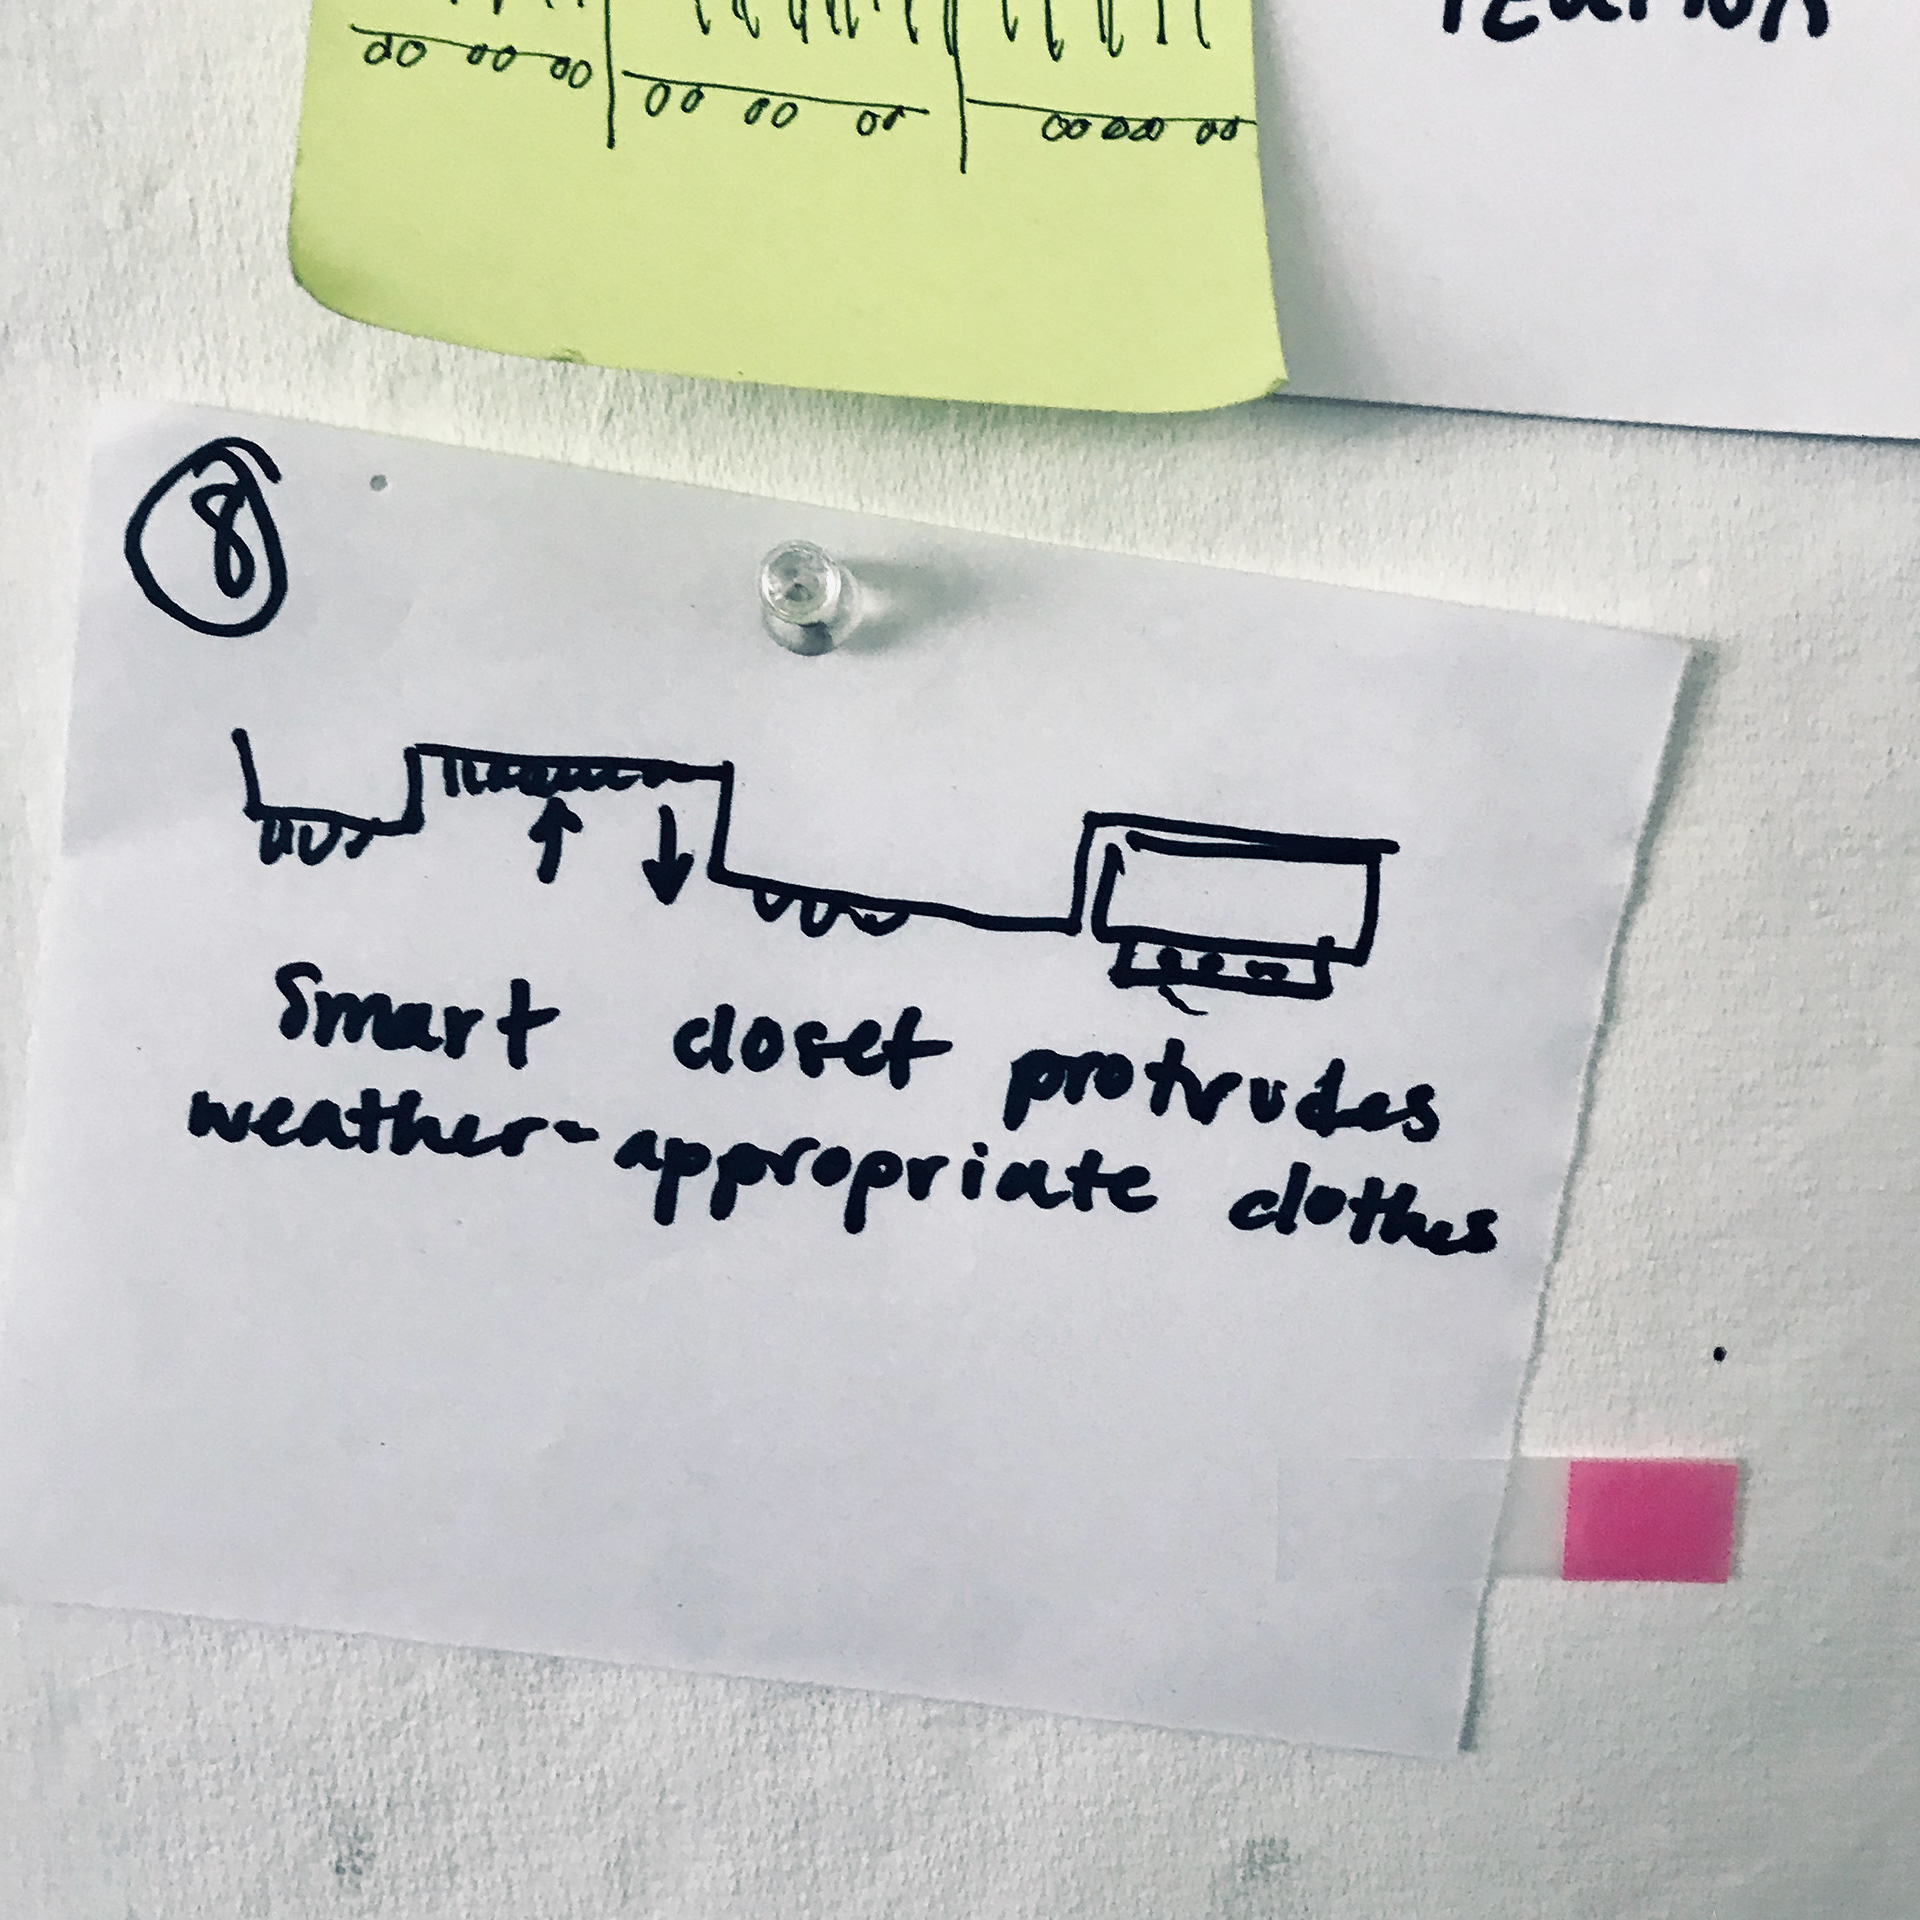 8
Smart closet protrudes
weather-appropriate clothes